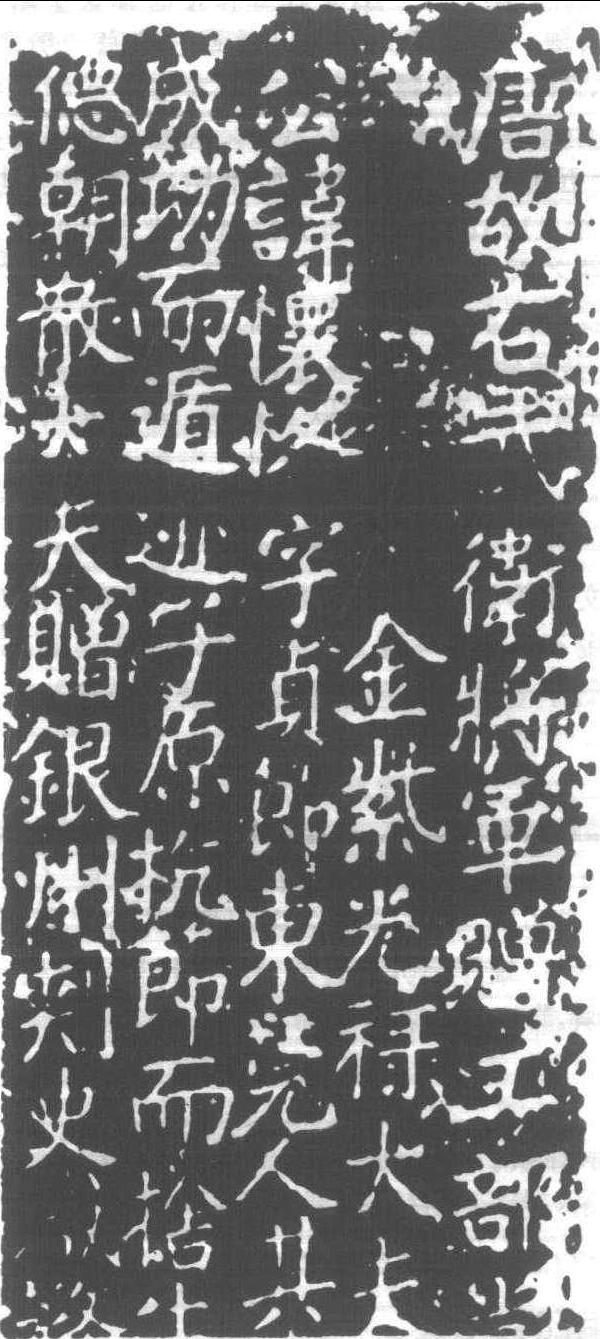 唐故右武衛將軍贈工部尚
金紫光祿大夫
公諱懷恪字貞節東莞人其
成功而遁逃子原抗節而捐生
德朝散大夫贈銀州刺史